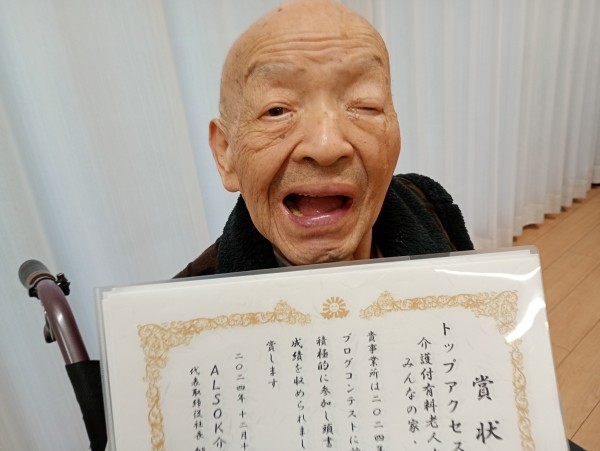 賞状
トップアクセス
介護付有料老人
みんなの家・
貴事業所は二〇二四年
ブログコンテストに
積極的に参加し頭書
成績を収められまし
賞します
二〇二四年十二月十
ALSOK介
代表取締役社長